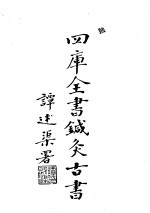 四庫全書鍼灸古書
譚述渠署